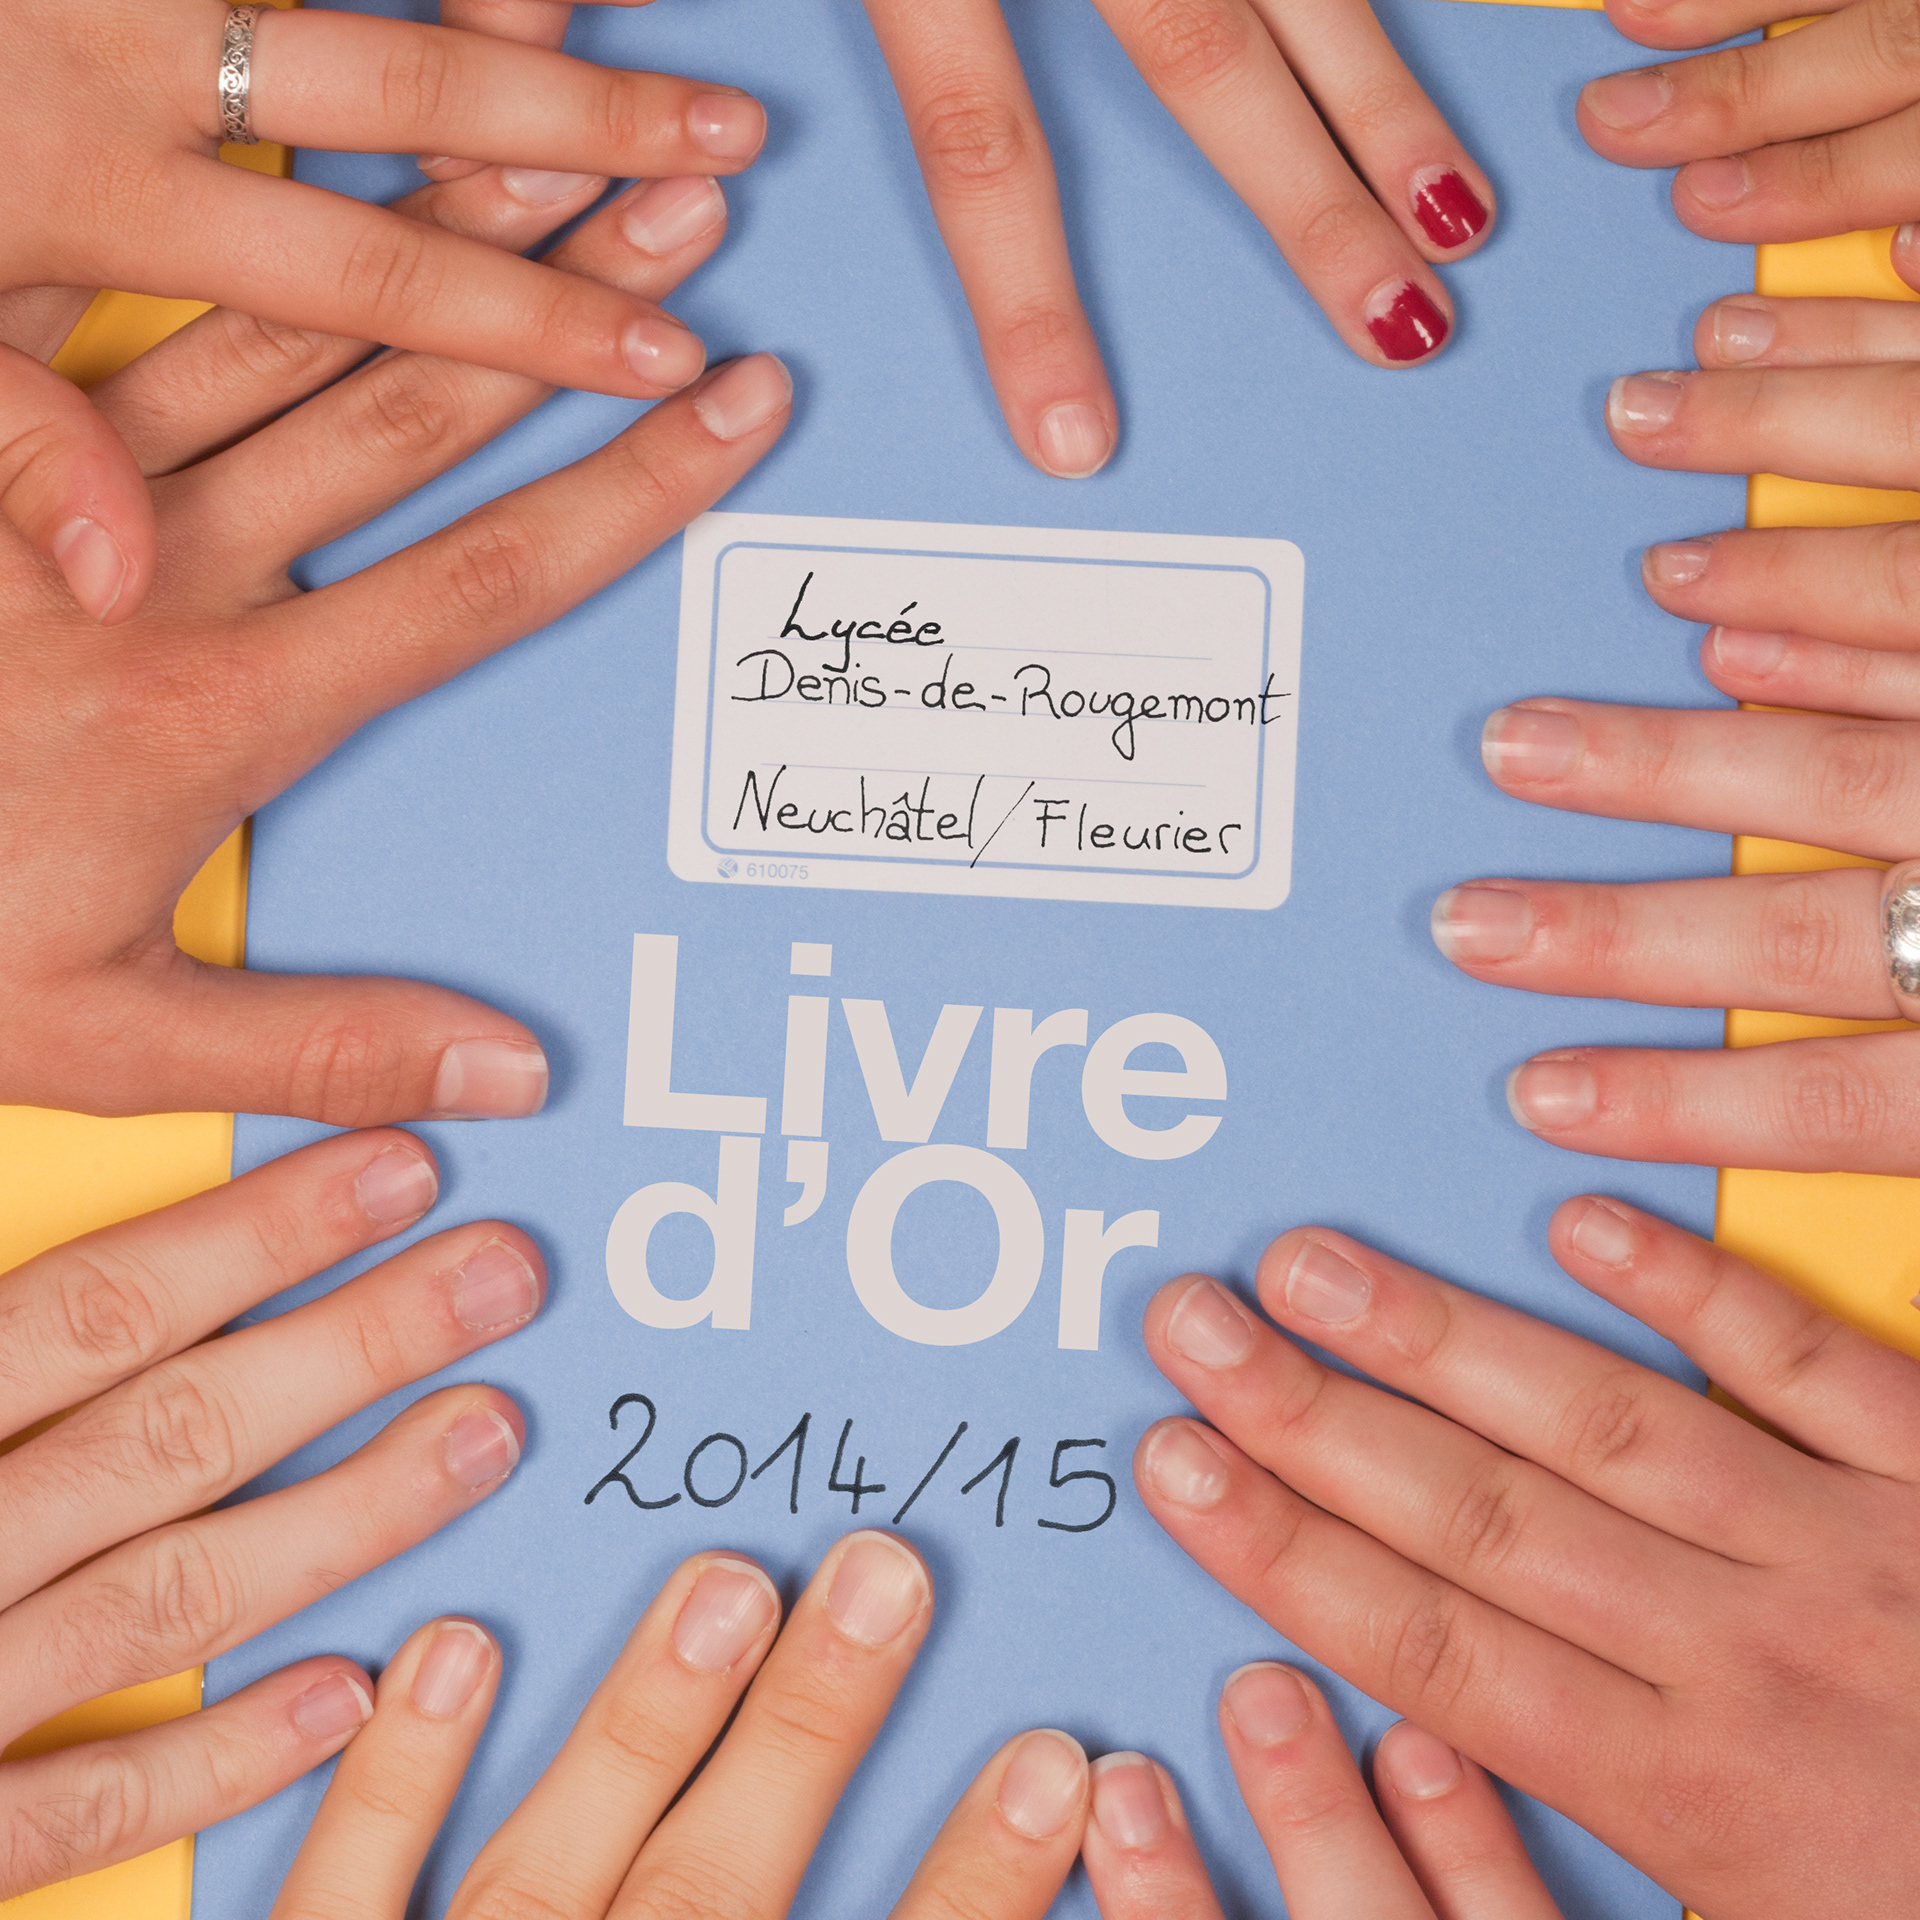 Lycée
Denis-de-Rougemont
Neuchâtel/Fleurier
610075
Livre
d’Or
2014/15